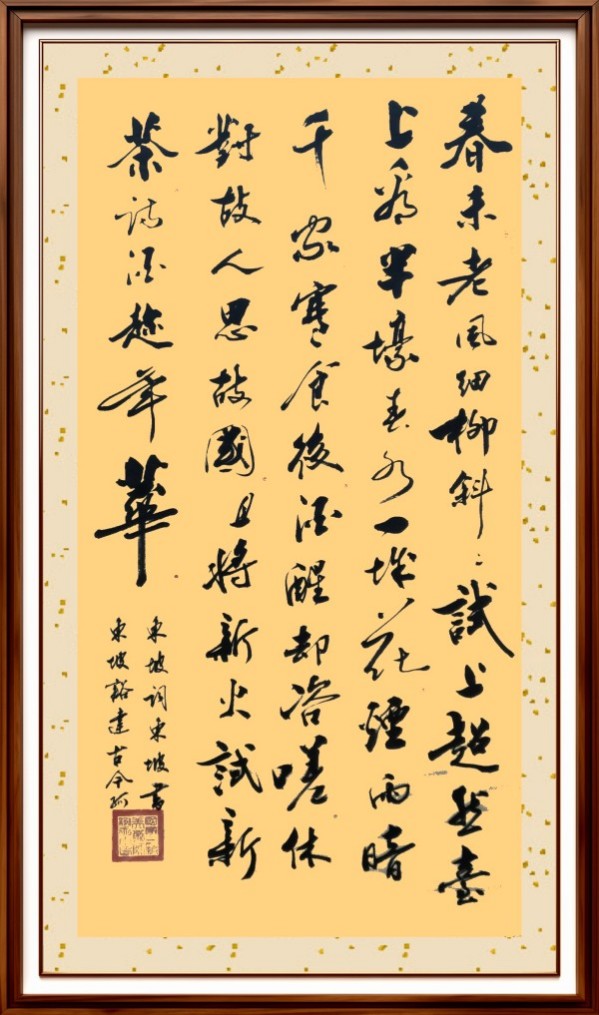 春未老風細柳斜〻試上超然臺
上看半壕春水一城花煙雨暗
千家寒食後酒醒却咨嗟休
對故人思故國且將新火試新
茶詩酒趁年華
東坡詞東坡書
東坡豁達古今孤